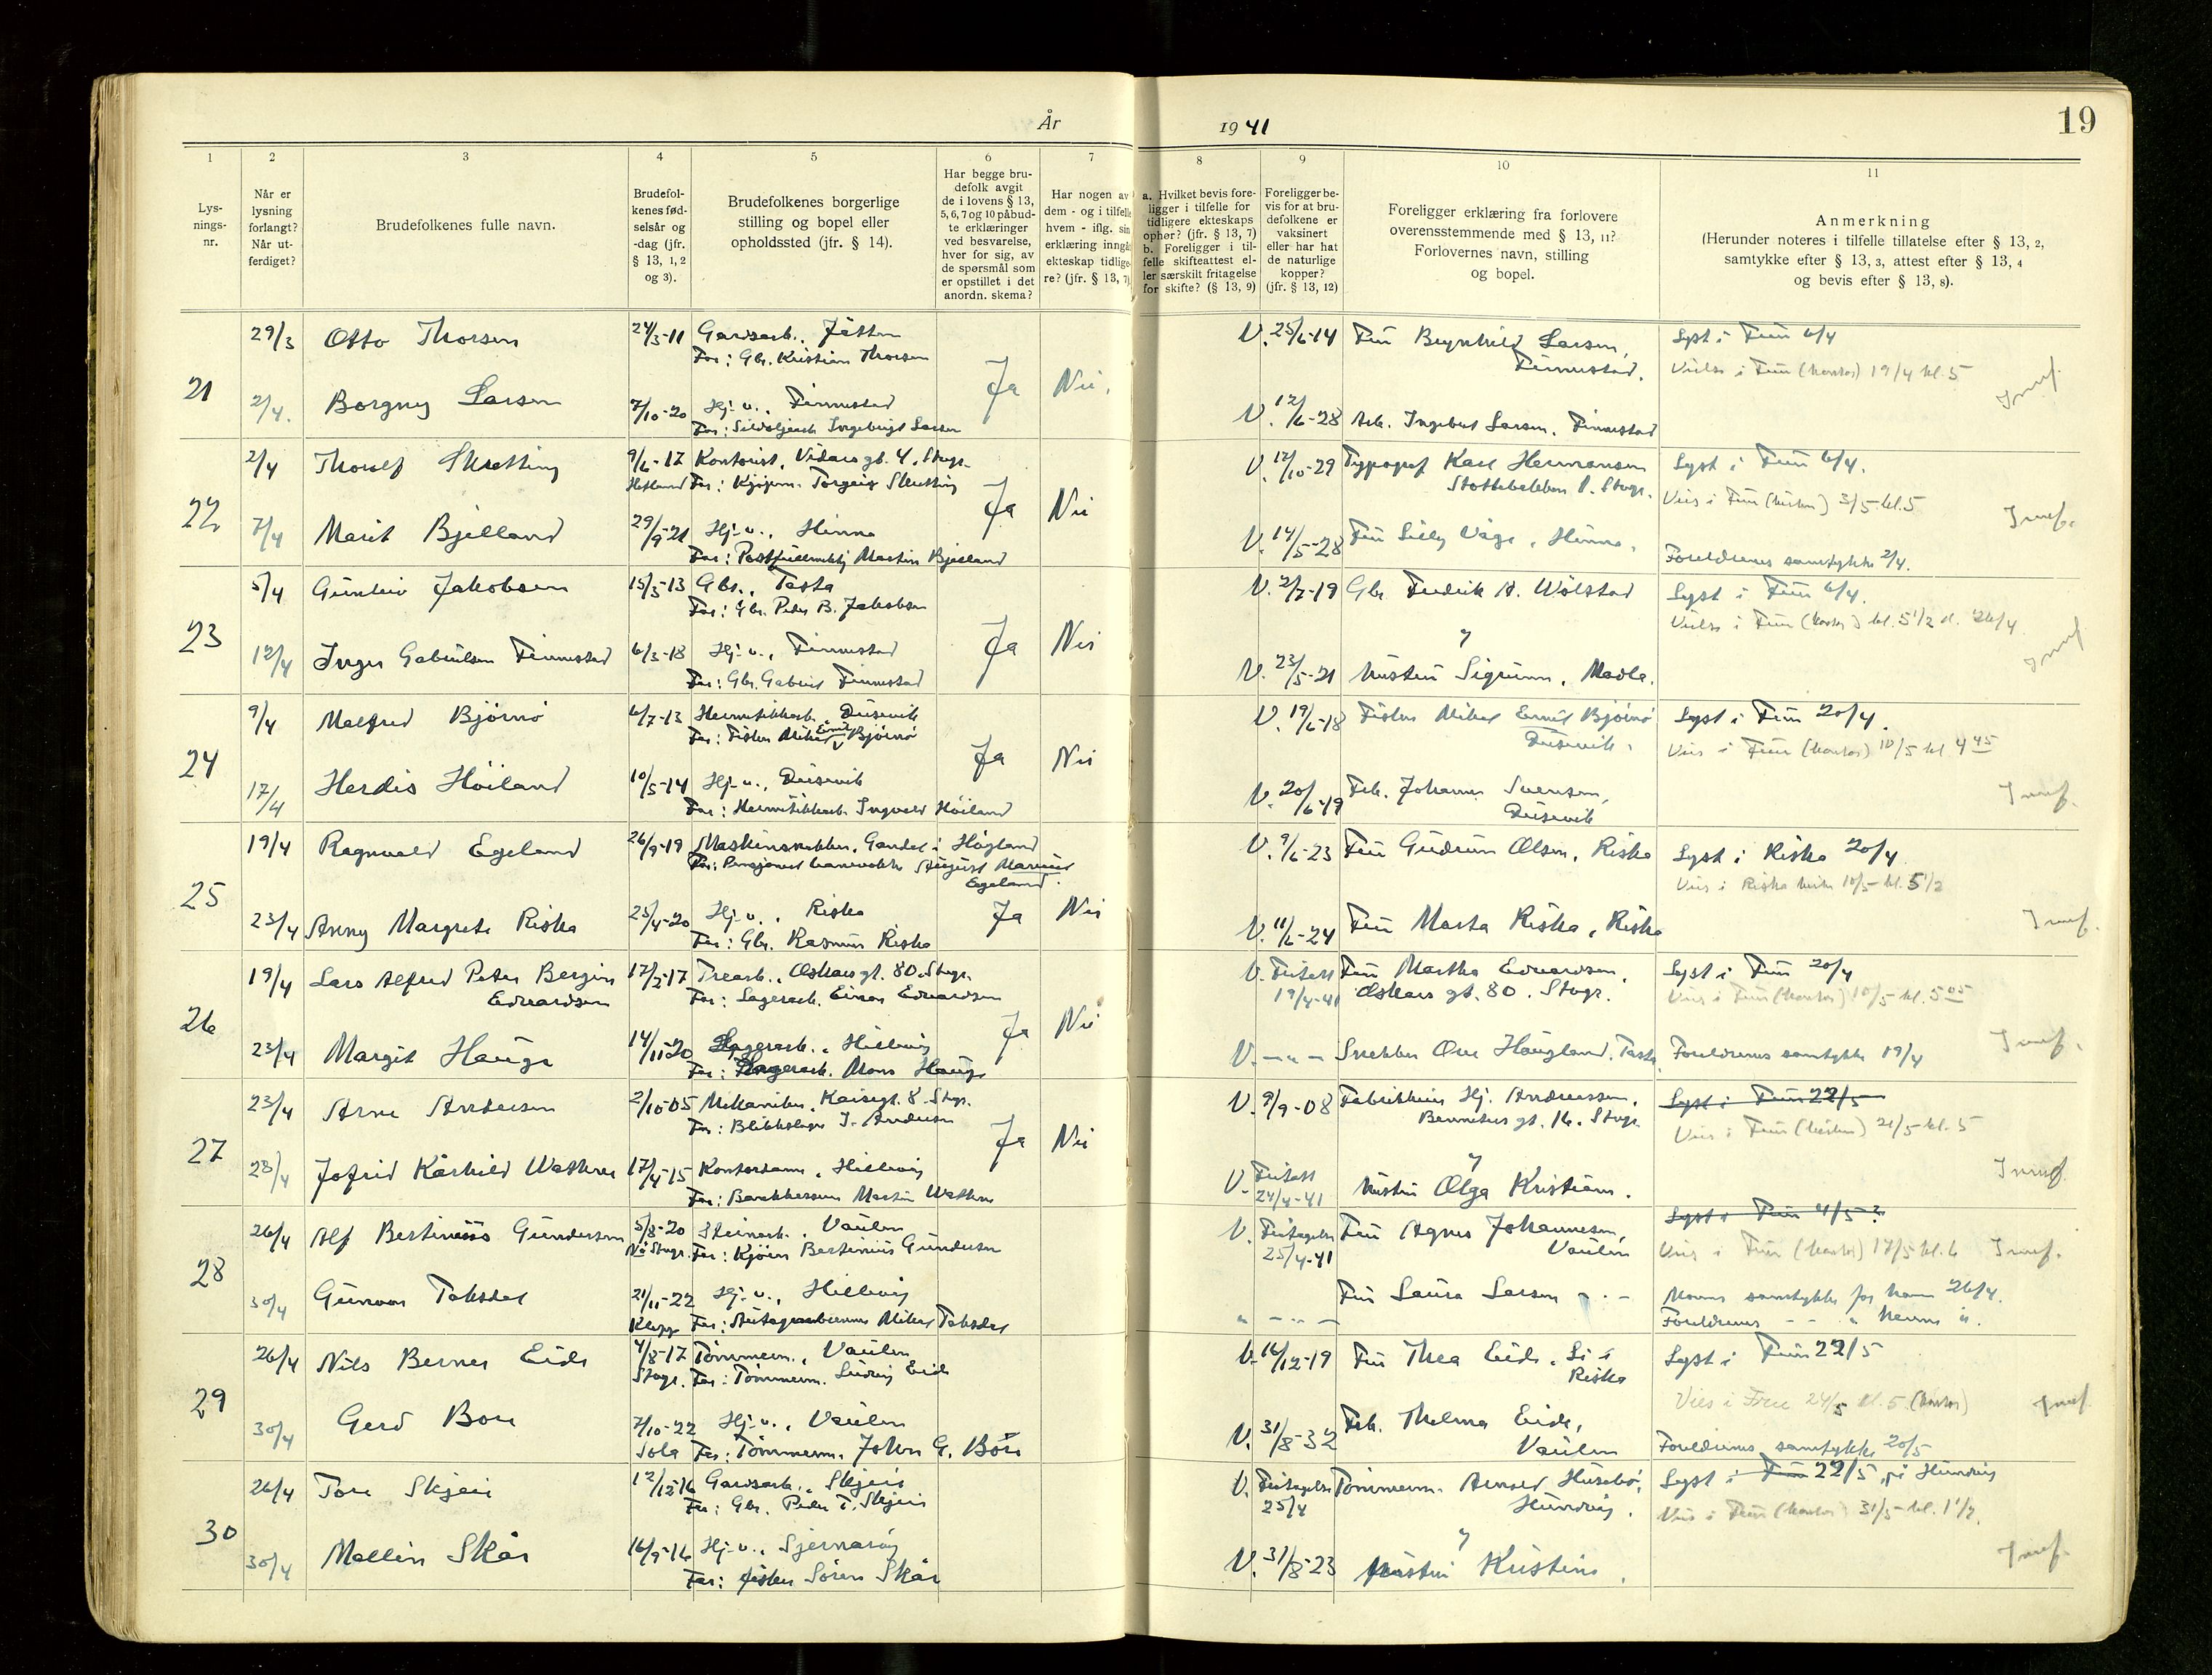 År 1941
19
1
2
3
4
5
6
7
8
9
10
11
Lys-
nings-
nr.
Når er
lysning
forlangt?
Når ut-
ferdiget?
Brudefolkenes fulle navn.
Brudefol-
kenes fød-
selsår og
-dag (jfr.
§ 13, 1, 2
og 3).
Brudefolkenes borgerlige
stilling og bopel eller
opholdssted (jfr. § 14).
Har begge bru-
defolk avgit
de i lovens § 13,
5, 6, 7 og 10 påbud-
te erklæringer
ved besvarelse,
hver for sig, av
de spørsmål som
er opstillet i det
anordn. skema?
Har nogen av
dem - og i tilfelle
hvem - iflg. sin
erklæring inngå
ekteskap tidlige-
re? (jfr. § 13, 7)
a. Hvilket bevis fore-
ligger i tilfelle for
tidligere ekteskaps
ophør? (jfr. § 13, 7)
b. Foreligger i til-
felle skifteattest el-
ler særskilt fritagelse
for skifte? (§ 13, 9)
Foreligger be-
vis for at bru-
defolkene er
vaksinert
eller har hat
de naturlige
kopper?
(jfr. § 13, 12)
Foreligger erklæring fra forlovere
overensstemmende med § 13, 11?
Forlovernes navn, stilling
og bopel.
Anmerkning
(Herunder noteres i tilfelle tillatelse efter § 13, 2,
samtykke efter § 13, 3, attest efter § 13, 4
og bevis efter § 13, 8).
21
29/3 Otto Thorsen 24/3-11 Gardsarb., Jåtten
Far: Gbr. Kristian Thorsen
2/4. Borgny Larsen 7/10-20 Hj.v., Finnestad
Far: Sildoljearb. Ingebrigt Larsen
Ja Nei.
V. 25/6-14 Fru Brynhild Larsen,
Finnestad.
V. 12/6-28 Arb. Ingebret Larsen, Finnestad
Lyst i Frue 6/4
Vielse i Frue (kontor) 19/4 kl. 5
Innf.
22
2/4 Thorolf Skretting 9/6-17 Kontorist, Vidars gt. 4, Stvgr.
Hetland Far: Kjøpm. Torgeir Skretting
7/4 Marit Bjelland 29/9-21 Hj.v., Hinna
Far: Postfullmektig Martin Bjelland
Ja Nei
V. 12/10-29 Typograf Karl Hermansen
Stottebakken 1. Stvgr.
V. 14/5-28 Fru Lilly Våge, Hinna.
Lyst i Frue 6/4.
Vies i Frue (kirken) 3/5 kl. 5
Foreldrenes samtykke 2/4.
Innf.
23
5/4 Gunleiv Jakobsen 15/3-13 Gbr., Tasta
Far: Gbr. Peder B. Jakobsen
12/4 Inger Gabrielsen Finnestad 6/3-18 Hj.v., Finnestad
Far: Gbr. Gabriel Finnestad
Ja Nei
V. 2/7-19 Gbr. Fredrik A. Wølstad
og
V. 23/5-21 hustru Sigrunn, Madla.
Lyst i Frue 6/4.
Vielse i Frue (kontor) kl. 5 1/2 d. 26/4
Innf
24
9/4 Malfred Bjørnø 6/7-13 Hermetikkarb., Dusevik
Far: Fisker Mikal Emil Bjørnø
17/4 Herdis Høiland 10/5-14 Hj.v., Dusevik
Far: Hermetikkarb. Ingvald Høiland
Ja Nei
V. 19/6-18 Fisker Mikal Emil Bjørnø
Dusevik.
V. 20/6-19 Frk. Johanne Svensen,
Dusevik
Lyst i Frue 20/4.
Vies i Frue (kontor) 10/5 kl 4 45
Innf.
25
19/4 Ragnvald Egeland 26/9-19 Maskinsnekker, Gandal i Høgland
Far: Pensjonert banevokter August Marius
Egeland.
23/4 Anny Margrete Riska 25/4-20 Hj.v., Riska
Far: Gbr. Rasmus Riska
Ja Nei
V. 9/6-23 Fru Gudrun Olsen, Riska
V. 11/6-24 Fru Marta Riska, Riska
Lyst i Riska 20/4
Vies i Riska kirke 10/5 kl. 5 1/2
Innf.
26
19/4 Lars Alfred Peter Bergin
Edvardsen 17/2-17 Trearb., Oskars gt. 80. Stvgr.
Far: Lagerarb. Einar Edvardsen
23/4 Margit Hauge 14/11-20 Lagerarb., Hillevåg
Far: Lagerarb. Mons Hauge
Ja Nei
V. Friattest
19/4-41
Fru Martha Edvardsen,
Oskars gt. 80. Stvgr.
V. - " - Snekker Ove Haugland, Tasta
Lyst i Frue 20/4
Vies i Frue (kontor) 10/5 kl. 5 05
Foreldrenes samtykke 19/4
Innf.
27
23/4 Arne Andersen 2/10-05 Mekaniker, Kaisegt. 8. Stvgr.
Far: Blikkslager J. Andersen
28/4 Jofrid Kårhild Wathne 17/4-15 Kontordame, Hillevåg
Far: Martin Wathne
Ja Nei
V. 9/9-08 Hj. Andreassen,
gt. 16. Stvgr.
og
V. Friattest
24/4-41
hustru Olga Kristiane.
Lyst i Frue 22/5
Vies i Frue (kirken) 21/5 kl. 5
Innf
28
26/4 Alf Bertinius Gundersen 5/8-20 Steinarb., Vaulen
Far: Kjøim Bertinius Gundersen
30/4 Gunvor Taksdal 21/11-22 Hj.v., Hillevåg
Klepp Far: Mikal Taksdal
V. Fritagelse
25/4-41
Fru Agnes Johannesen,
Vaulen
" - " - Fru Laura Larsen - " -
Lyst i Frue 4/5 ?
Vies i Frue (kontor) 17/5 kl. 6 Innf.
Morens samtykke for ham 26/4.
Foreldrenes - - " henne "
29
26/4 Nils Berner Eide 4/8-17 Tømmerm., Vaulen
Stvgr. Far: Tømmerm. Ludvig Eide
30/4 Gerd Bore 7/10-22 Hj.v., Vaulen
Sola Far: Tømmerm. John G. Bore
V. 16/12-19 Fru Thea Eide, Li i
Riska
V. 31/8-32 Frk. Thelma Eide,
Vaulen
Lyst i Frue 22/5
Vies i Frue 24/5 kl. 5 (kontor)
Foreldrenes samtykke 20/5
Innf
30
26/4 Tore Skjeie 12/12-16 Gardsarb., Skjeie
Far: Gbr. Peder T. Skjeie
30/4 Mallin Skår 16/9-16 Hj.v., Sjernarøy
Far: fisker Søren Skår
V. Fritagelse
25/4
Tømmerm. Arnold Husebø,
Hundvåg.
og
V. 31/8-23 hustru Kristine.
Lyst i Frue 22/5 på Hundvåg
Vies i Frue (kontor) 31/5 kl. 1 1/2.
Innf.